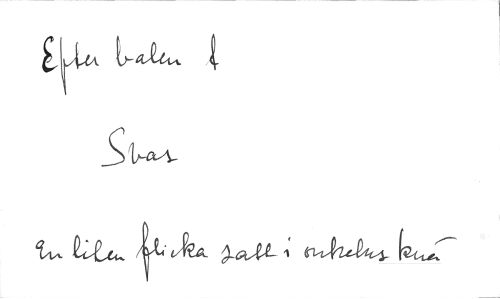 Efter balen
Svas
En liten flicka satt i onkelns knä